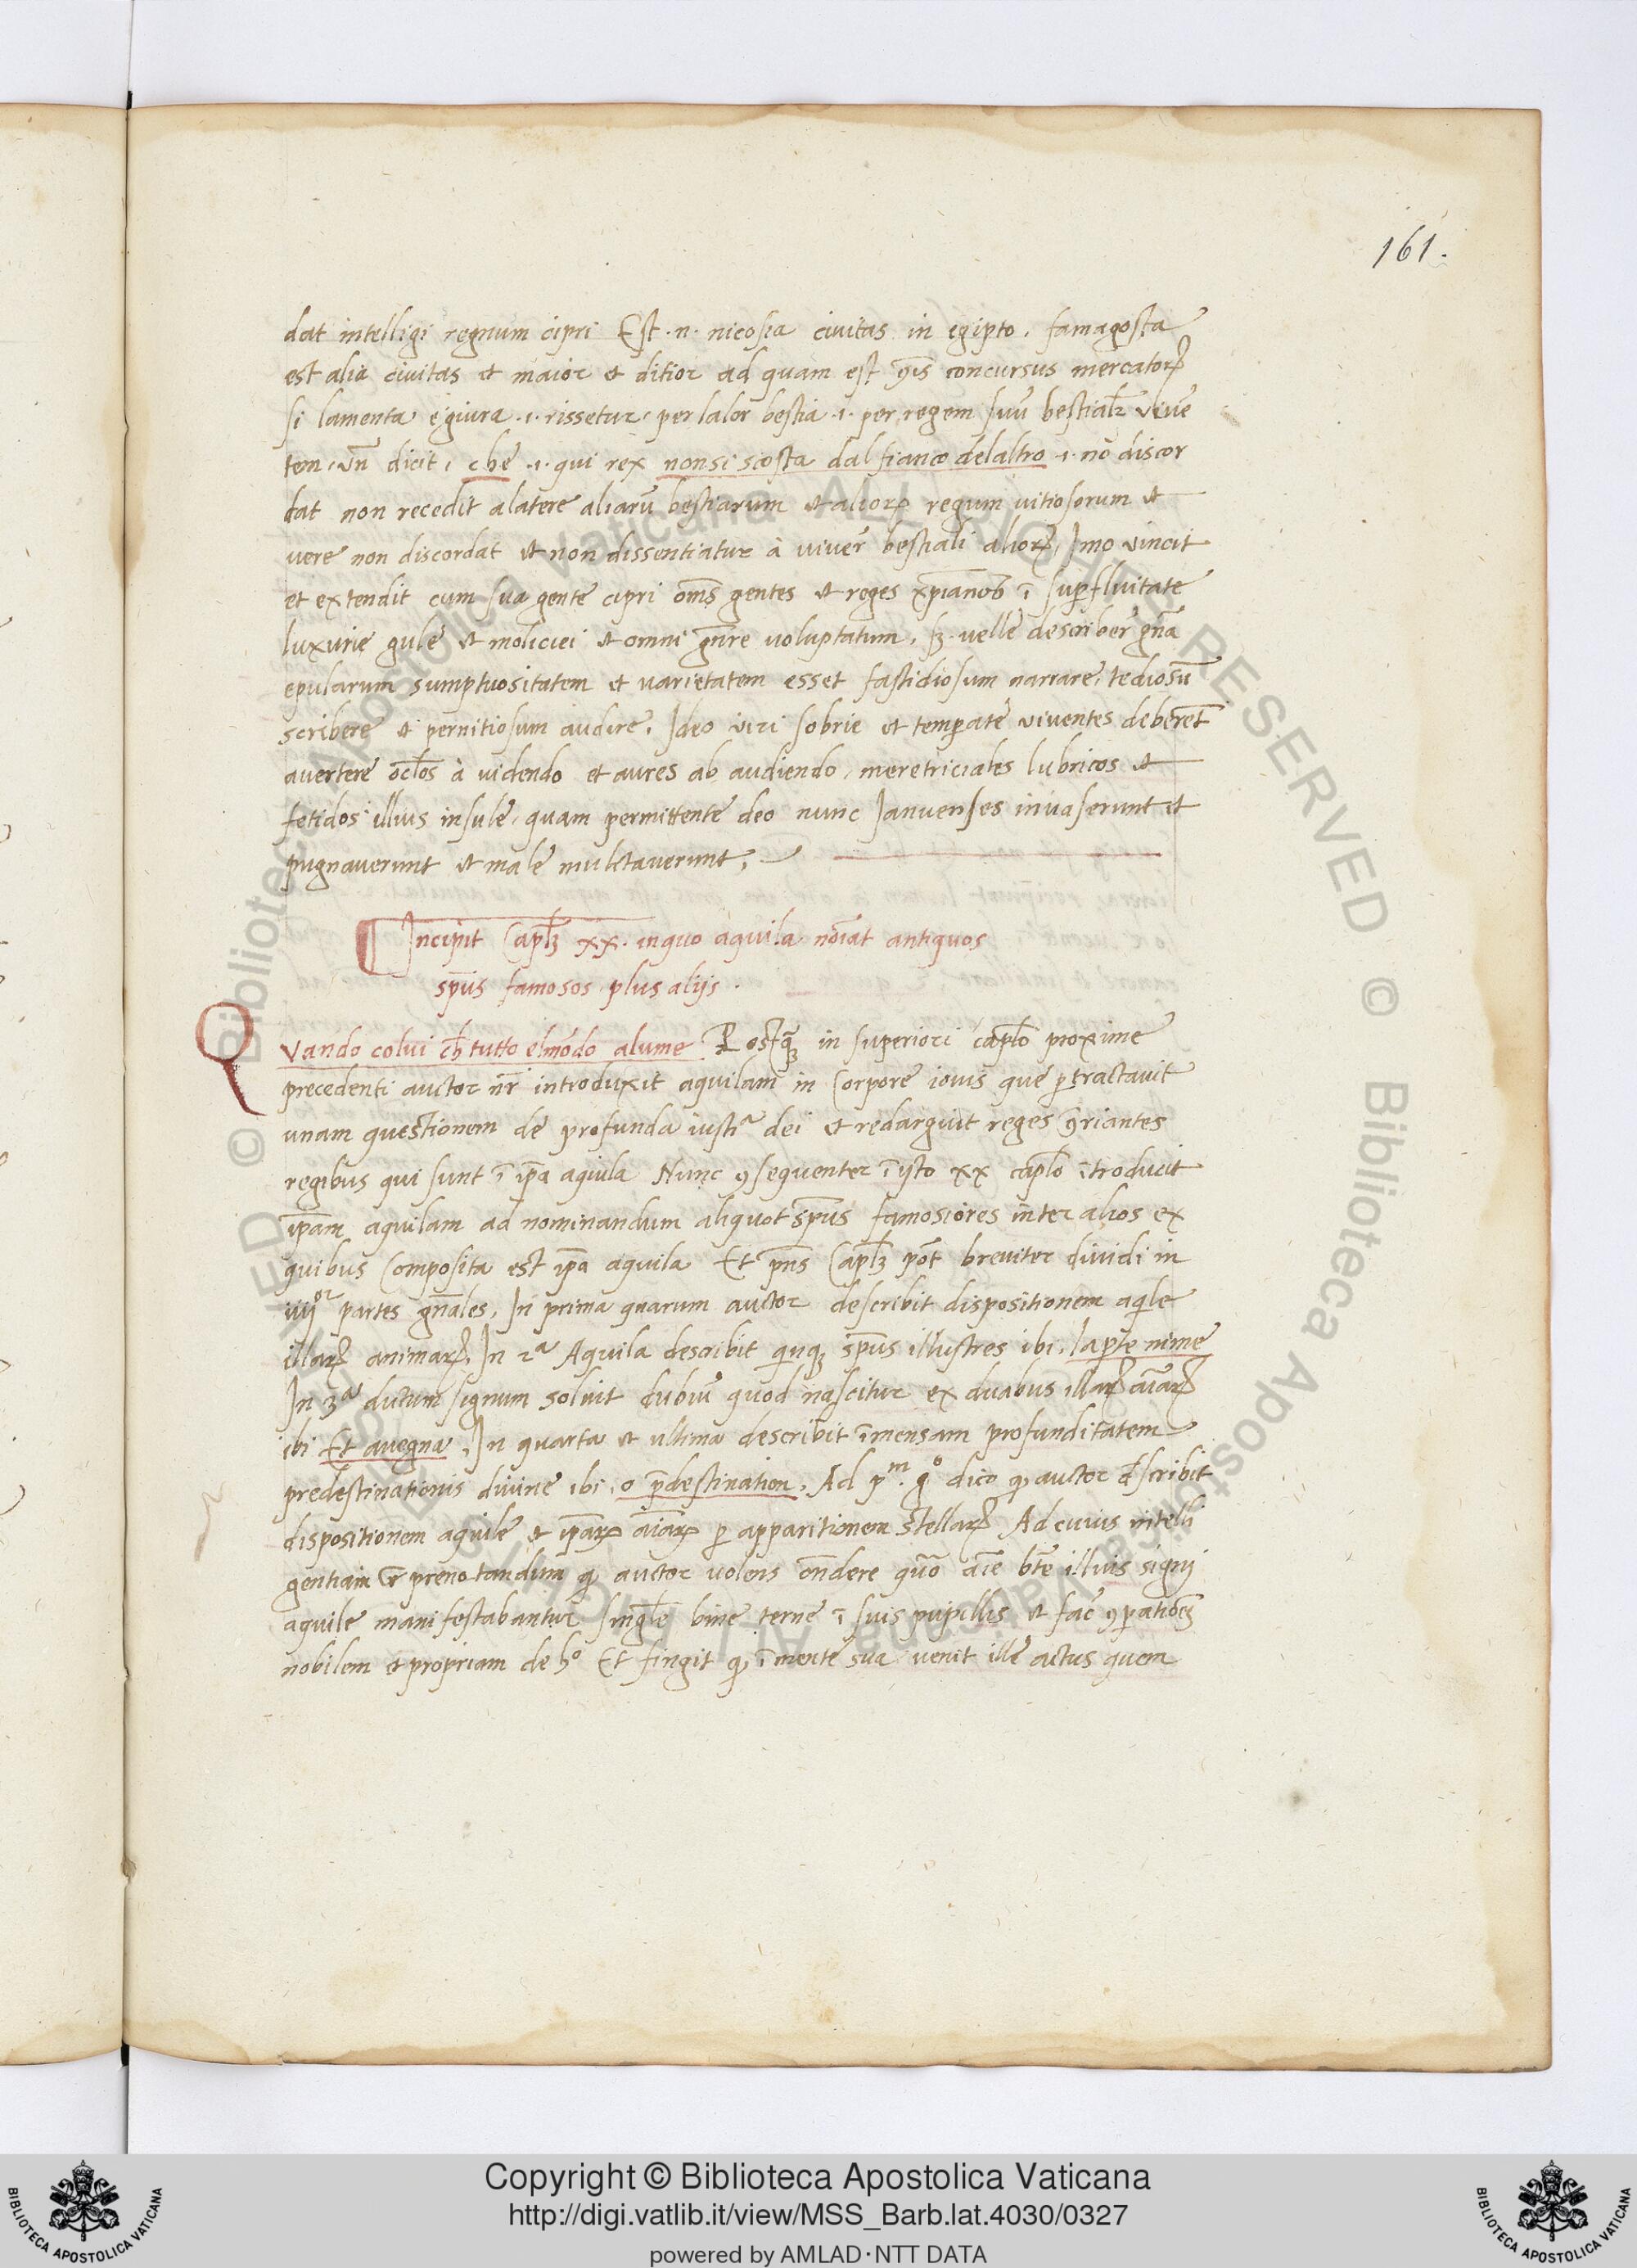 161.
dat intelligi regnum cipri Est .n. nicosia civitas in egipto. famagosta
est alia civitas et maior et ditior ad quam est ꝯis concursus mercatorꝝ
si lamenta e giura .i. rissetur. per lalor bestia .i. per regem suū bestialr̄ vive
tem. vn̄ dicit. che .i. qui rex non si scosta dal fianco delaltro .i. nō discor
dat non recedit a latere aliarū bestiarum et aliorꝝ regum vitiosorum et
vere non discordat et non dissentiatur à viver̄ bestiali aliorꝝ, Imo vincit
et extendit cum sua gente cipri om̄s gentes et reges xp̄ianos ī suꝑfluitate
luxurie gule et moliciei et omni gn̄re voluptatum. sꝫ velle describer̄ gn̄a
epularum sumptuositatem et varietatem esset fastidiosum narrare, tediosū
scribere et pernitiosum audire. Ideo viri sobrie et temꝑate viventes deberēt
avertere oc̄los à videndo et aures ab audiendo, meretriciales lubricos et
fetidos illius insule, quam permittente deo nunc Januenses invaserunt et
pugnaverunt et male mulctaverunt.
Incipit Capl̄ꝫ xx. in quo aquila no͞iat antiquos
sp̄us famosos plus alijs.
Qvando colui ch̄ tutto elmōdo alume Postq̄ꝫ in superiori cap̄lo proxime
precedenti auctor nr̄ introduxit aquilam in Corpore iovis que ꝑtractavit
unam questionem de profunda iustiᵃ dei et redarguit reges ꝯriantes
regibus qui sunt ī ip̄a aquila Nunc ꝯsequenter ī isto xx cap̄lo ītroducit
ip̄am aquilam ad nominandum aliquot sp̄us famosiores inter alios ex
quibus Composita est ip̄a aquila Et pn̄s Capl̄ꝫ pōt breviter dividi in
iiijᵒʳ partes gn̄ales. In prima quarum auctor describit dispositionem aqile
illarꝝ animarꝝ. In 2ᵃ Aquila describit quinqꝫ sp̄us illustres ibi. la ꝑte nime
In 3ᵃ dictum signum solvit dubiū quod nascitur ex duabus illarꝝ aīarꝝ
ibi Et avegna. In quarta et ultima describit īmensam profunditatem
predestinationis divine ibi. o p̄destination. Ad pᵐ. gᵒ dico ꝙ auctor dēscribit
dispositionem aquile et ip̄arꝝ aīarꝝ ꝑ apparitionem stellarꝝ Ad cuius intelli
gentiam ē prenotandum ꝙ auctor volens on̄dere quō aīe bt̄e illius signi
aquile manifestabantur singl̄e bine terne ī suis pupillis et fac̄ ꝯꝑationēꝫ
nobilem et propriam de hᵒ Et fingit ꝙ ī mente sua venit ille actus quem
Copyright © Biblioteca Apostolica Vaticana
http://digi.vatlib.it/view/MSS_Barb.lat.4030/0327
powered by AMLAD·NTT DATA
BIBLIOTECA APOSTOLICA VATICANA
BIBLIOTECA APOSTOLICA VATICANA